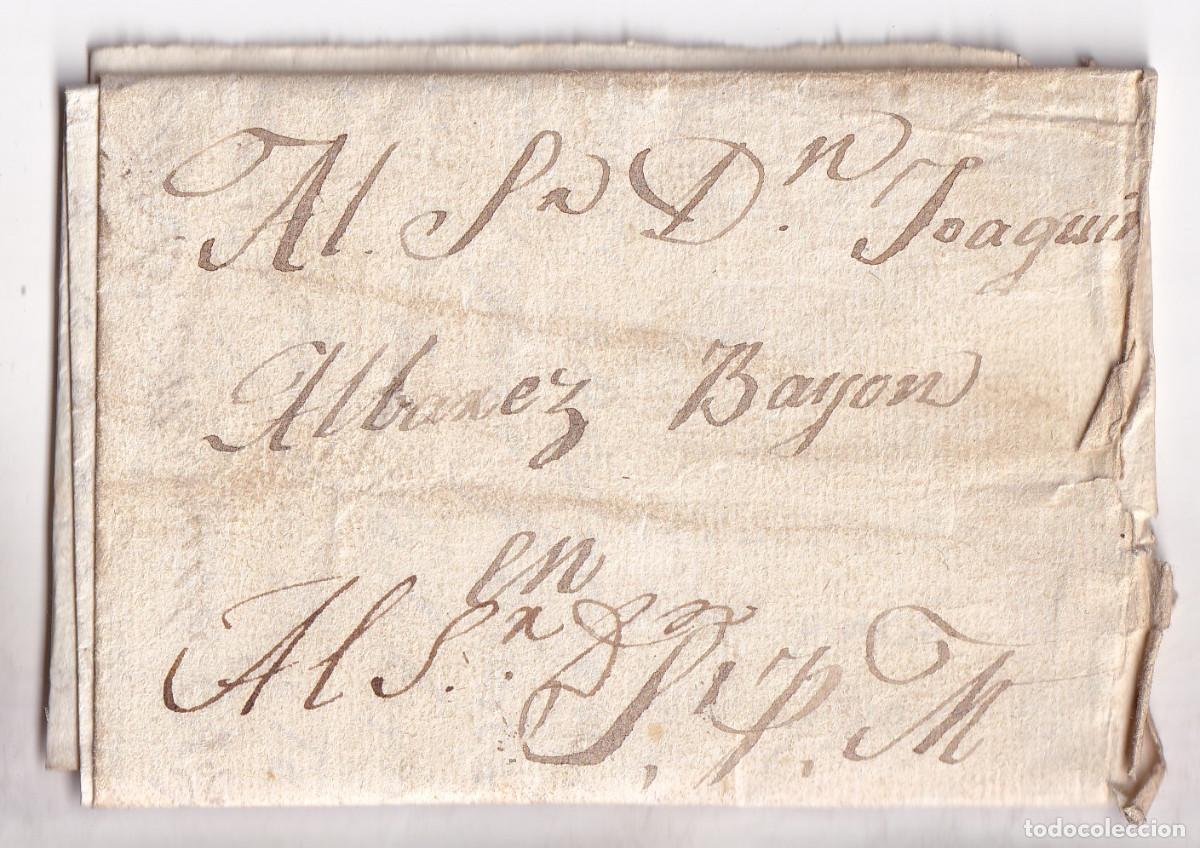 Al. Sr Dn. Joaquin
Albarez Bayon
en
Al Sr. Dn
S, P, M
todocoleccion